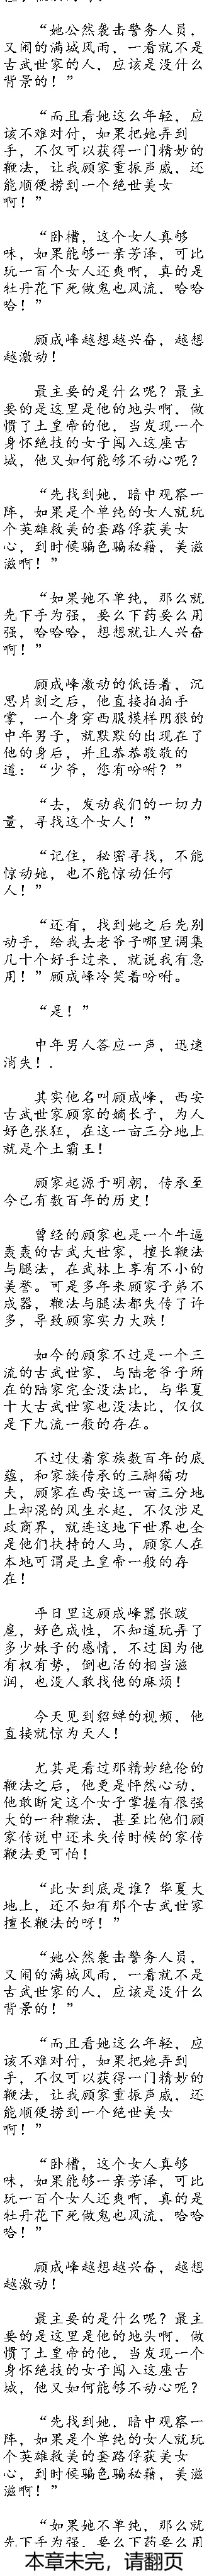 “她公然袭击警务人员，
又闹的满城风雨，一看就不是
古武世家的人，应该是没什么
背景的！”
“而且看她这么年轻，应
该不难对付，如果把她弄到
手，不仅可以获得一门精妙的
鞭法，让我顾家重振声威，还
能顺便捞到一个绝世美女
啊！”
“卧槽，这个女人真够
味，如果能够一亲芳泽，可比
玩一百个女人还爽啊，真的是
牡丹花下死做鬼也风流，哈哈
哈！”
顾成峰越想越兴奋，越想
越激动！
最主要的是什么呢？最主
要的是这里是他的地头啊，做
惯了土皇帝的他，当发现一个
身怀绝技的女子闯入这座古
城，他又如何能够不动心呢？
“先找到她，暗中观察一
阵，如果是个单纯的女人就玩
个英雄救美的套路俘获美女
心，到时候骗色骗秘籍，美滋
滋啊！”
“如果她不单纯，那么就
先下手为强，要么下药要么用
强，哈哈哈，想想就让人兴奋
啊！”
顾成峰激动的低语着，沉
思片刻之后，他直接拍拍手
掌，一个身穿西服模样阴狠的
中年男子，就默默的出现在了
他的身后，并且恭恭敬敬的
道：“少爷，您有吩咐？”
“去，发动我们的一切力
量，寻找这个女人！”
“记住，秘密寻找，不能
惊动她，也不能惊动任何
人！”
“还有，找到她之后先别
动手，给我去老爷子哪里调集
几十个好手过来，就说我有急
用！”顾成峰冷笑着吩咐。
“是！”
中年男人答应一声，迅速
消失！.
其实他名叫顾成峰，西安
古武世家顾家的嫡长子，为人
好色张狂，在这一亩三分地上
就是个土霸王！
顾家起源于明朝，传承至
今已有数百年的历史！
曾经的顾家也是一个牛逼
轰轰的古武大世家，擅长鞭法
与腿法，在武林上享有不小的
美誉。可是多年来顾家子弟不
成器，鞭法与腿法都失传了许
多，导致顾家实力大跌！
如今的顾家不过是一个三
流的古武世家，与陆老爷子所
在的陆家完全没法比，与华夏
十大古武世家也没法比，仅仅
是下九流一般的存在。
不过仗着家族数百年的底
蕴，和家族传承的三脚猫功
夫，顾家在西安这一亩三分地
上却混的风生水起，不仅涉足
政商界，就连这地下世界也全
是他们扶持的人马，顾家人在
本地可谓是土皇帝一般的存
在！
平日里这顾成峰嚣张跋
扈，好色成性，不知道玩弄了
多少妹子的感情，不过因为他
有权有势，倒也活的相当滋
润，也没人敢找他的麻烦！
今天见到貂蝉的视频，他
直接就惊为天人！
尤其是看过那精妙绝伦的
鞭法之后，他更是怦然心动，
他敢断定这个女子掌握有很强
大的一种鞭法，甚至比他们顾
家传说中还未失传时候的家传
鞭法更可怕！
“此女到底是谁？华夏大
地上，还不知有那个古武世家
擅长鞭法的呀！”
“她公然袭击警务人员，
又闹的满城风雨，一看就不是
古武世家的人，应该是没什么
背景的！”
“而且看她这么年轻，应
该不难对付，如果把她弄到
手，不仅可以获得一门精妙的
鞭法，让我顾家重振声威，还
能顺便捞到一个绝世美女
啊！”
“卧槽，这个女人真够
味，如果能够一亲芳泽，可比
玩一百个女人还爽啊，真的是
牡丹花下死做鬼也风流，哈哈
哈！”
顾成峰越想越兴奋，越想
越激动！
最主要的是什么呢？最主
要的是这里是他的地头啊，做
惯了土皇帝的他，当发现一个
身怀绝技的女子闯入这座古
城，他又如何能够不动心呢？
“先找到她，暗中观察一
阵，如果是个单纯的女人就玩
个英雄救美的套路俘获美女
心，到时候骗色骗秘籍，美滋
滋啊！”
“如果她不单纯，那么就
先下手为强，要么下药要么用
本章未完，请翻页